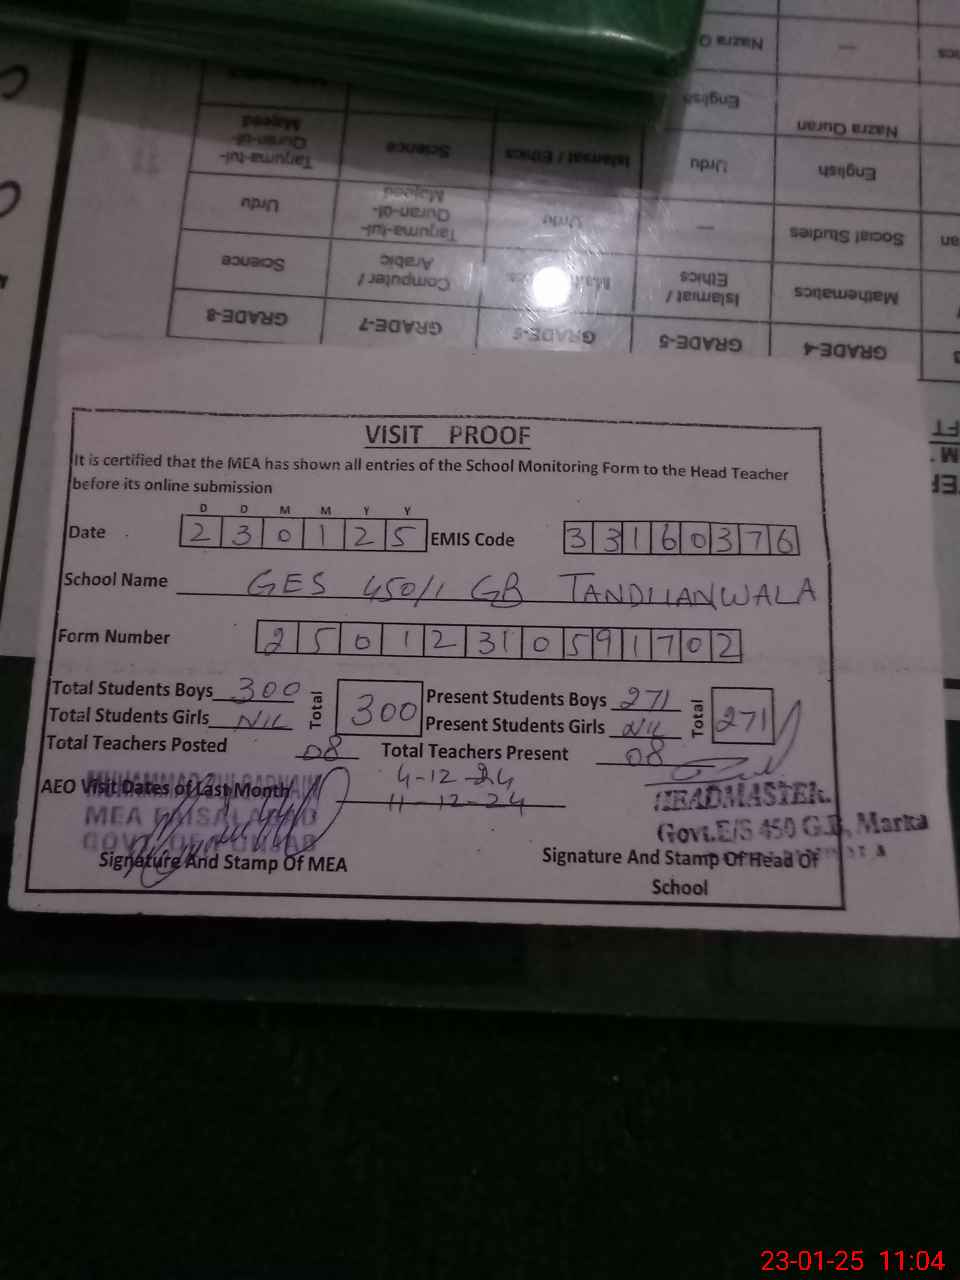 Nazra Q
—
English
Nazra Quran
Tarjuma-tul-Quran-ul-Majeed
Science
Islamiat / Ethics
Urdu
English
Urdu
Tarjuma-tul-Quran-ul-Majeed
Urdu
—
Social Studies
Science
Computer / Arabic
Islamiat / Ethics
Mathematics
GRADE-8
GRADE-7
GRADE-6
GRADE-5
GRADE-4
VISIT PROOF
It is certified that the MEA has shown all entries of the School Monitoring Form to the Head Teacher
before its online submission
D D M M Y Y
Date 2 3 0 1 2 5 EMIS Code 3 3 1 6 0 3 7 6
School Name GES 450/1 GB TANDLIANWALA
Form Number 2 5 0 1 2 31 0 5 9 1 7 0 2
Total Students Boys 300 Total 300 Present Students Boys 271 Total 271
Total Students Girls NIL Present Students Girls NIL
Total Teachers Posted 08 Total Teachers Present 08
4-12-24
AEO Visit Dates of Last Month 11-12-24
MUHAMMAD ZULQARNAIN
MEA FAISALABAD
GOVT. OF PUNJAB
HEADMASTER.
Govt.E/S 450 G.B, Marka
Signature And Stamp Of MEA
Signature And Stamp Of Head Of
School
23-01-25 11:04